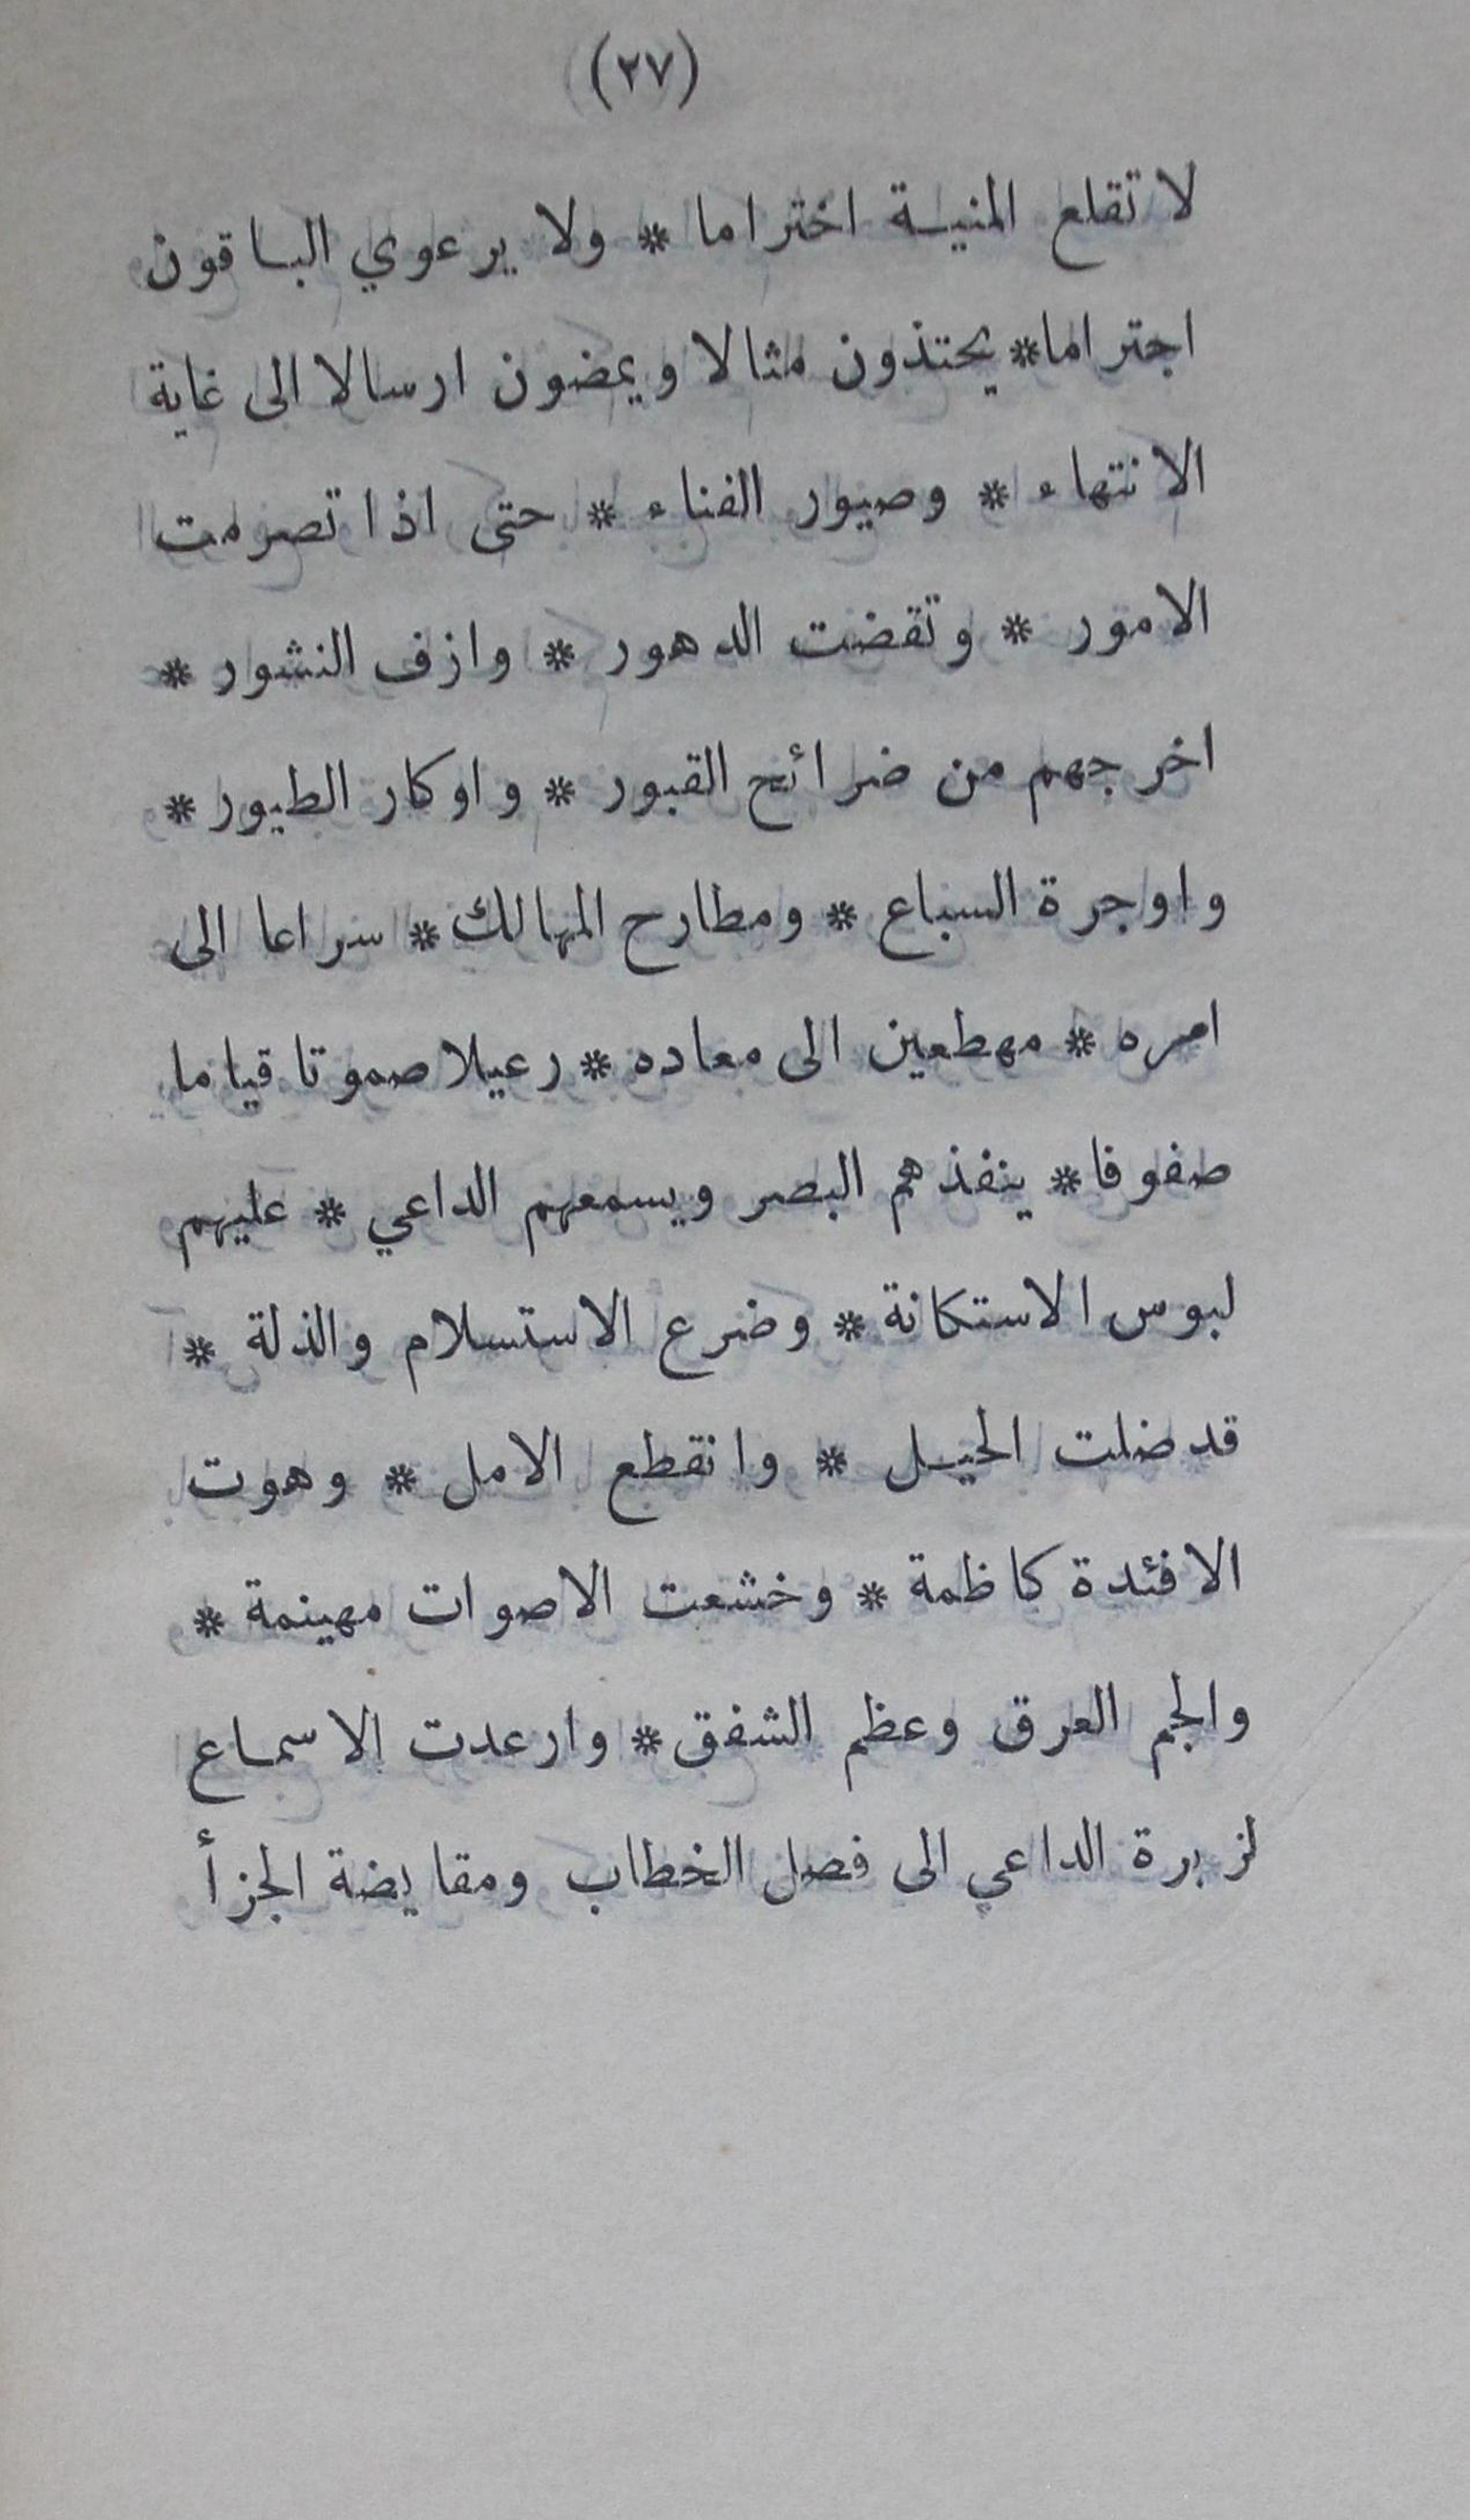 (٢٧)
لا تقلع المنية اختراما * ولا يرعوي الباقون
اجتراما * يحتذون مثالا ويمضون ارسالا الى غاية
الانتهاء * وصيور الفناء * حتى اذا تصرمت
الامور * وتقضت الدهور * وازف النشور *
اخرجهم من ضرائح القبور * واوكار الطيور *
واوجرة السباع * ومطارح المهالك * سراعا الى
امره * مهطعين الى معاده * رعيلا صموتا قياما
صفوفا * ينفذهم البصر ويسمعهم الداعي * عليهم
لبوس الاستكانة * وضرع الاستسلام والذلة *
قد ضلت الحيل * وانقطع الامل * وهوت
الافئدة كاظمة * وخشعت الاصوات مهينمة *
والجم العرق وعظم الشفق * وارعدت الاسماع
لزبرة الداعي الى فصل الخطاب ومقايضة الجزأ